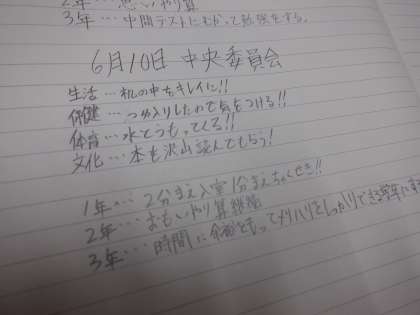 2年…思いやり算
3年…中間テストにむかって勉強をする。
6月10日 中央委員会
生活…机の中もキレイに!!
保健…つゆ入りしたので気をつける!!
体育…水とうもってくる!!
文化…本を沢山読んでもらう!
1年…2分まえ入室1分まえちゃくせき!!
2年…おもいやり算継続
3年…時間に余裕をもってメリハリをしっかりできる学年にす